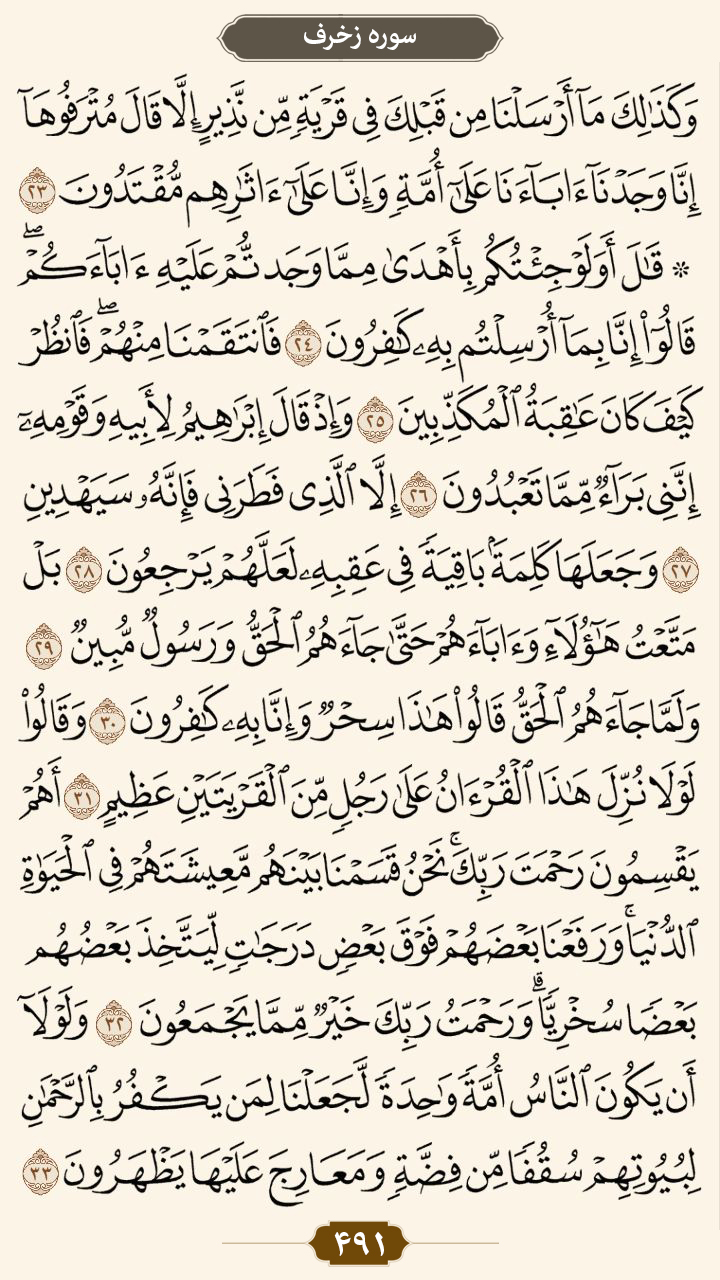 سوره زخرف
وَكَذَٰلِكَ مَآ أَرۡسَلۡنَا مِن قَبۡلِكَ فِي قَرۡيَةٖ مِّن نَّذِيرٍ إِلَّا قَالَ مُتۡرَفُوهَآ
إِنَّا وَجَدۡنَآ ءَابَآءَنَا عَلَىٰٓ أُمَّةٖ وَإِنَّا عَلَىٰٓ ءَاثَٰرِهِم مُّقۡتَدُونَ ٢٣
۞ قَٰلَ أَوَلَوۡ جِئۡتُكُم بِأَهۡدَىٰ مِمَّا وَجَدتُّمۡ عَلَيۡهِ ءَابَآءَكُمۡۖ
قَالُوٓاْ إِنَّا بِمَآ أُرۡسِلۡتُم بِهِۦ كَٰفِرُونَ ٢٤ فَٱنتَقَمۡنَا مِنۡهُمۡۖ فَٱنظُرۡ
كَيۡفَ كَانَ عَٰقِبَةُ ٱلۡمُكَذِّبِينَ ٢٥ وَإِذۡ قَالَ إِبۡرَٰهِيمُ لِأَبِيهِ وَقَوۡمِهِۦٓ
إِنَّنِي بَرَآءٞ مِّمَّا تَعۡبُدُونَ ٢٦ إِلَّا ٱلَّذِي فَطَرَنِي فَإِنَّهُۥ سَيَهۡدِينِ
٢٧ وَجَعَلَهَا كَلِمَةَۢ بَاقِيَةٗ فِي عَقِبِهِۦ لَعَلَّهُمۡ يَرۡجِعُونَ ٢٨ بَلۡ
مَتَّعۡتُ هَٰٓؤُلَآءِ وَءَابَآءَهُمۡ حَتَّىٰ جَآءَهُمُ ٱلۡحَقُّ وَرَسُولٞ مُّبِينٞ ٢٩
وَلَمَّا جَآءَهُمُ ٱلۡحَقُّ قَالُواْ هَٰذَا سِحۡرٞ وَإِنَّا بِهِۦ كَٰفِرُونَ ٣٠ وَقَالُواْ
لَوۡلَا نُزِّلَ هَٰذَا ٱلۡقُرۡءَانُ عَلَىٰ رَجُلٖ مِّنَ ٱلۡقَرۡيَتَيۡنِ عَظِيمٍ ٣١ أَهُمۡ
يَقۡسِمُونَ رَحۡمَتَ رَبِّكَۚ نَحۡنُ قَسَمۡنَا بَيۡنَهُم مَّعِيشَتَهُمۡ فِي ٱلۡحَيَوٰةِ
ٱلدُّنۡيَاۚ وَرَفَعۡنَا بَعۡضَهُمۡ فَوۡقَ بَعۡضٖ دَرَجَٰتٖ لِّيَتَّخِذَ بَعۡضُهُم
بَعۡضٗا سُخۡرِيّٗاۗ وَرَحۡمَتُ رَبِّكَ خَيۡرٞ مِّمَّا يَجۡمَعُونَ ٣٢ وَلَوۡلَآ
أَن يَكُونَ ٱلنَّاسُ أُمَّةٗ وَٰحِدَةٗ لَّجَعَلۡنَا لِمَن يَكۡفُرُ بِٱلرَّحۡمَٰنِ
لِبُيُوتِهِمۡ سُقُفٗا مِّن فِضَّةٖ وَمَعَارِجَ عَلَيۡهَا يَظۡهَرُونَ ٣٣
۴۹۱